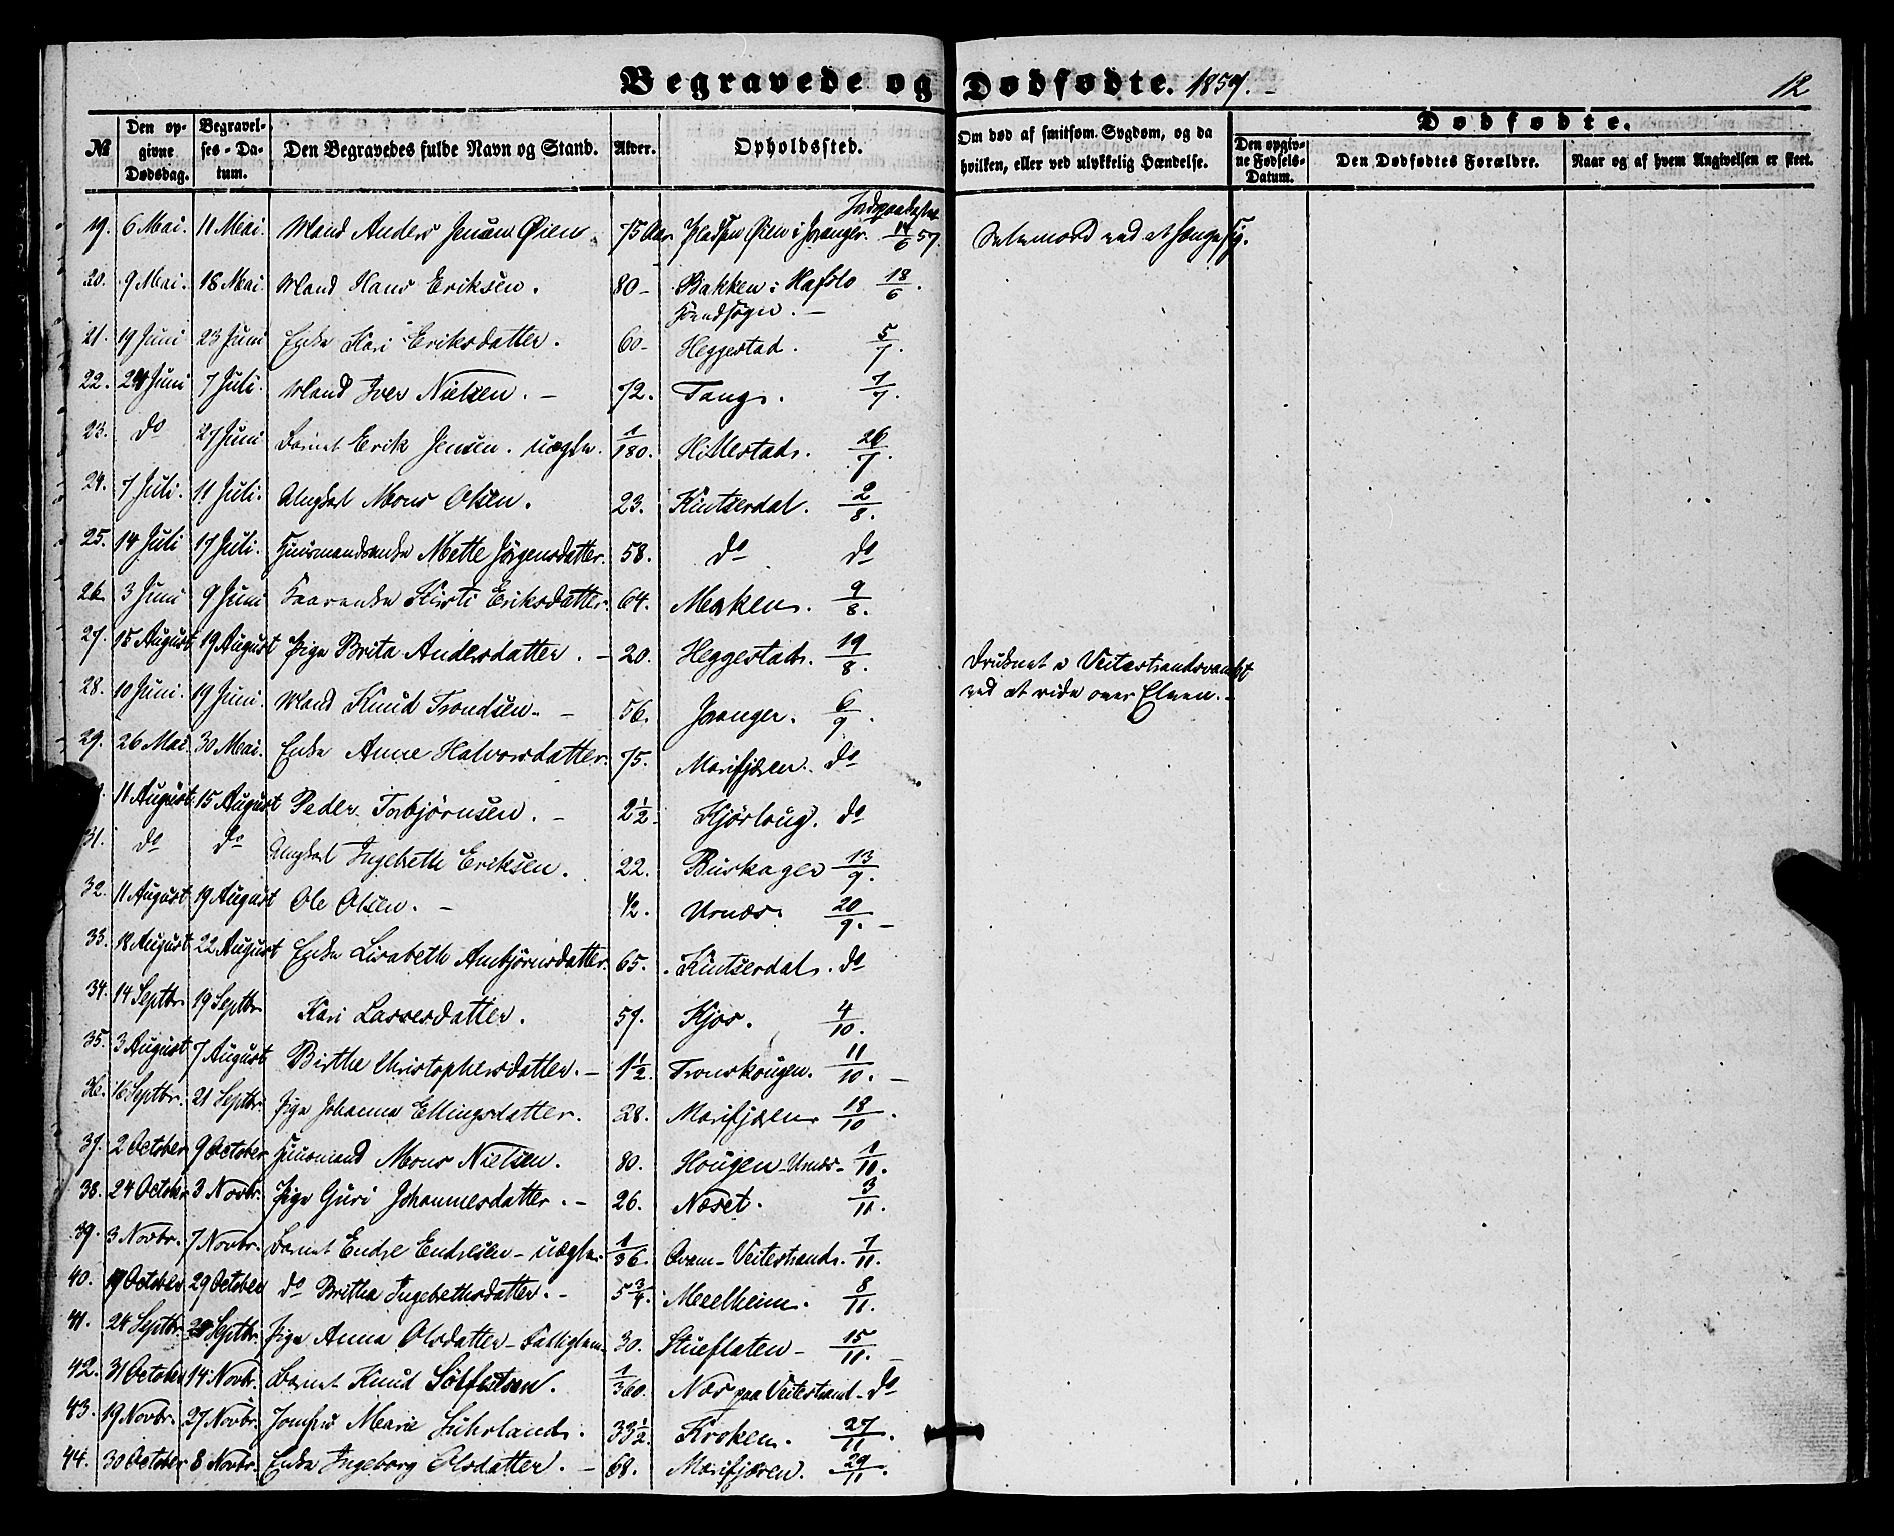 Begravede og Dødfødte. 1857. 12
№ Den opgivne Dødsdag. Begravelses-Datum. Den Begravedes fulde Navn og Stand. Alder. Opholdssted. Om død af smitsom. Sygdom, og da hvilken, eller ved ulykkelig Hændelse. Dødfødte. Den opgivne Fødsels-Datum. Den Dødfødtes Forældre. Naar og af hvem Angivelsen er skeet.
Jordpaakastet
19. 6 Mai. 11 Mai. Mand Anders Jensen Øien. 75 Aar Pladsen Øien i Joranger. 14/6 57. Selvmord ved at hænge sig.
20. 9 Mai. 18 Mai. Mand Hans Eriksen. 80 - Bakken i Hafslo 18/6.
21. 19 Juni 23 Juni Enke Kari Eriksdatter. 60 - Heggestad. 5/7.
22. 24 Juni 7 Juli. Mand Iver Nielsen. - 72. Tang. 7/7.
23. do 27 Juni Barnet Erik Jensen. uægte. 1/180. Hillestad. 26/7.
24. 7 Juli. 11 Juli. Ungkarl Mons Olsen. 23. Kintserdal. 2/8.
25. 14 Juli 17 Juli. Huusmandsenke Mette Jørgensdatter. 58. do do
26. 3 Juni 9 Juni Kaarenke Kirsti Eriksdatter. 64. Moken. 9/8.
27. 15 August 19 August Pige Brita Andersdatter. - 20. Heggestad. 19/8. Druknet i Veitestrandsvandet
ved at ride over Elven. -
28. 10 Juni. 19 Juni. Mand Knud Trondsen. - 56. Joranger. 6/9.
29. 26 Mai 30 Mai. Enke Anne Halvorsdatter. 75. Marifjæren. do
11 August 15 August Peder Torbjørnsen. - 2 1/2. Kjørloug. do
31. do do Ungkarl Ingebeth Eriksen. 22. Buskager 13/9.
32. 11 August 19 August Ole Olsen. - 1/2. Urnæs. 20/9. -
33. 18 August 22 August Enke Lisabeth Ambjørnsdatter. 65. Kintserdal. do
34. 14 Septbr. 19 Septbr. Kari Lassesdatter. 57. Kjos. 4/10.
35. 3 August 7 August Birthe Christophersdatter. - 1 1/2. Tronskougen. 11/10. -
36. 16 Septbr. 21 Septbr. Pige Johanna Ellingsdatter. 28. Marifjæren 18/10.
37. 2 October 9 October Huusmand Mons Nielsen. 80. Hougen - Urnæs - 1/11.
38. 24 October 3 Novbr. Pige Guri Johannesdatter. - 26. Næset. 3/11.
39. 3 Novbr. 7 Novbr. Barnet Endre Endresen - uægte. 1/36. Qvam - Veitestrand. 7/11.
40. 19 October 29 October do Britha Ingebethsdatter. - 5 3/4. Meelheim. 8/11.
41. 24 Septbr. 29 Septbr. Pige Anna Olsdatter - Fattiglem. 30. Stueflaten - 15/11. -
42. 31 October 14 Novbr. Barnet Knud Sølfestsen. 1/360. Næs paa Veitestrand - do
43. 19 Novbr. 27 Novbr. Jomfru Marie Suhrland. 33 1/2. Kroken. 27/11.
44. 30 October 8 Novbr. Enke Ingeborg Olsdatter. - 68. Marifjæren. 29/11.